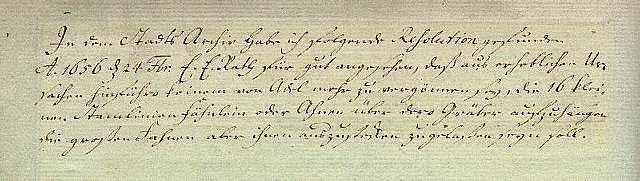 In dem Stadts Archiv habe ich folgende Resolution gefunden
A. 1656 d 24 E. E. Rath für gut angesehen, daß aus erheblichen Ur-
sachen hinführo keinem von Adel mehr zu vergönnen sey, die 16 klei-
nen Stamlinien fähnlein oder Ahnen über dero Gräber aufzuhängen
die großen Fahnen aber ihnen aufzustecken zugelassen seyn soll.